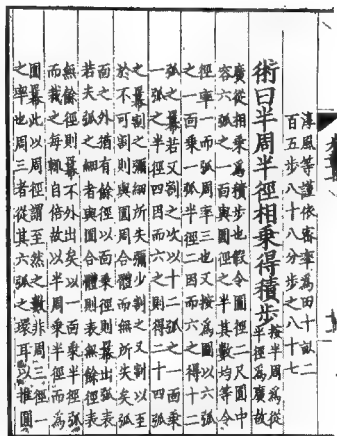 淳風等謹依密率爲田十畝二
百五步八十八分步之八十七
術曰半周半徑相乘得積步按半周爲從
半徑爲廣故
廣從相乘爲積步也假令圓徑二尺圓中
容六弧之一面與圓徑之半其數均等令
徑率一而弧周率三也又按爲圖以六弧
之一面乘一弧半徑二因而六之得十二
弧之冪若又割之次以十二弧之一面乘
一弧之半徑四因而六之則得二十四弧
之冪割之彌細所失彌少割之又割以至
於不可割則與圓周合體而無所失矣弧
面之外猶有餘徑以面乘徑則冪出弧表
若夫弧之細者與圓合體則表無餘徑表
無餘徑則冪不外出矣以一面乘半徑弧
而裁之每輒自倍故以半周乘半徑而爲
圓冪此以周徑謂至然之數非周三徑一
之率也周三者從其六弧之環耳以推圓